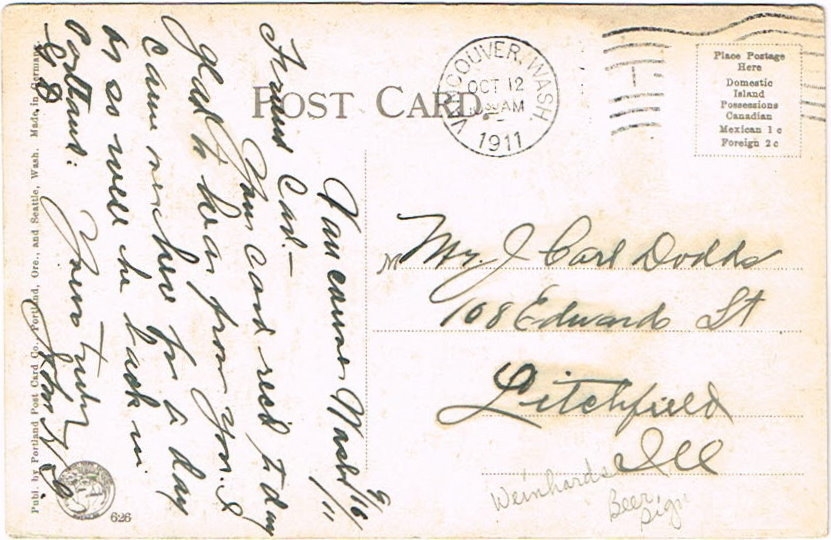 POST CARD
VANCOUVER, WASH.
OCT 12
AM
1911
Place Postage
Here
Domestic
Island
Possessions
Canadian
Mexican 1 c
Foreign 2 c
Vancouver Wash 9/16/11
Friend Carl -
Your card rec'd today
glad to hear from you. I
came here for a day
or so will be back in
Portland.
Yours truly
John
Mr. J Carl Dodds
108 Edwards St
Litchfield
Ill
Weinhards
Beer
Sign
Publ. by Portland Post Card Co., Portland, Ore., and Seattle, Wash. Made in Germany.
626